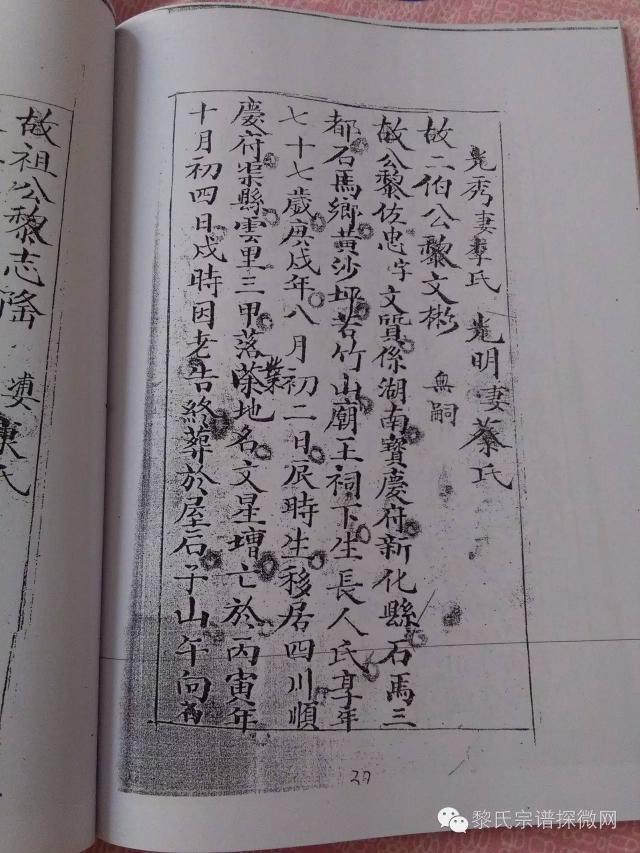 光秀妻李氏 光明妻蔡氏
故二伯公黎文彬 無嗣
故公黎佐忠字文質係湖南寳慶府新化縣石馬三
都石馬鄉黄沙坪若竹山廟王祠下生長人氏享年
七十七歲庚戌年八月初二日辰時生移居四川順
慶府渠縣雲里三甲落業地名文星壇亡於丙寅年
十月初四日戌時因老告終葬於屋石子山午向為
故祖公黎志隆 妻康氏
27
黎氏宗谱探微网